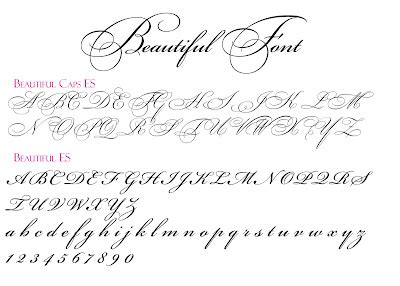 Beautiful Font
Beautiful Caps ES
A B C D E F G H I J K L M
N O P Q R S T U V W X Y Z
Beautiful ES
A B C D E F G H I J K L M N O P Q R S
T U V W X Y Z
a b c d e f g h i j k l m n o p q r s t u v w x y z
1 2 3 4 5 6 7 8 9 0